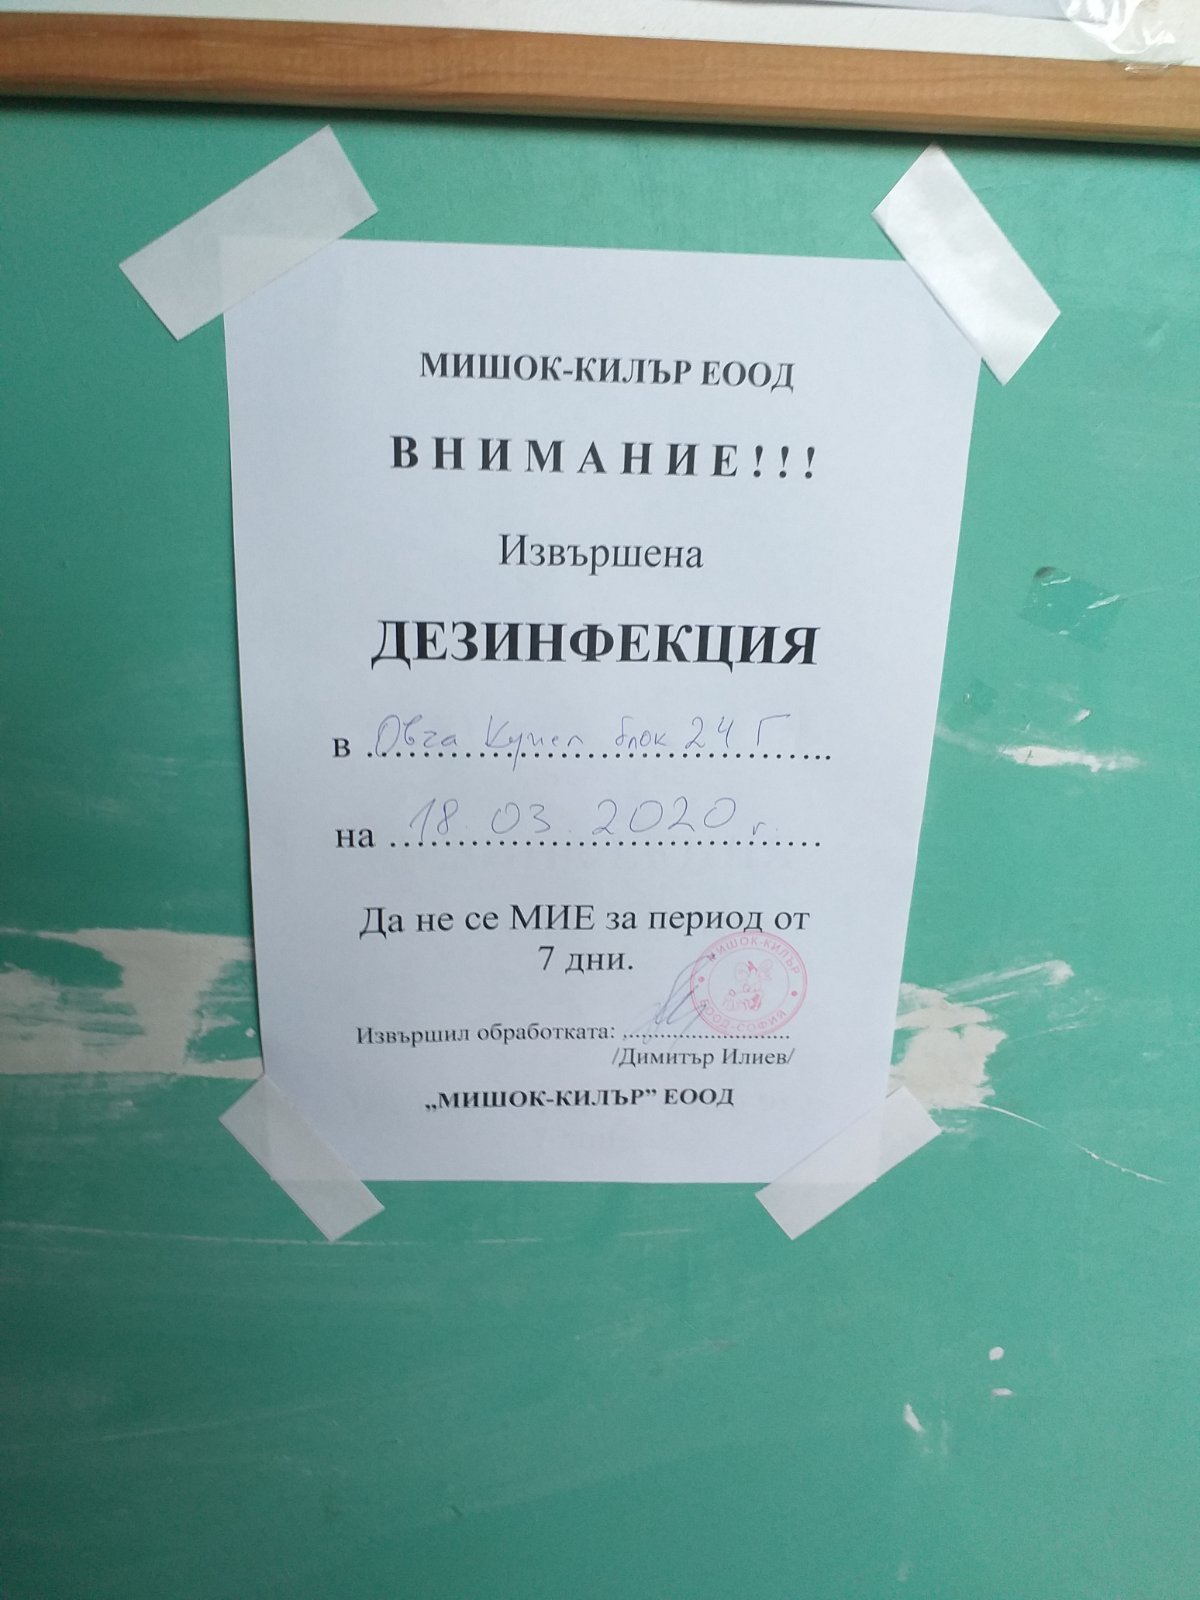 МИШОК-КИЛЪР ЕООД
ВНИМАНИЕ!!!
Извършена
ДЕЗИНФЕКЦИЯ
в Овча Купел блок 24 Г
на 18.03.2020 г.
Да не се МИЕ за период от
7 дни.
МИШОК-КИЛЪР
ЕООД-СОФИЯ
Извършил обработката:
/Димитър Илиев/
„МИШОК-КИЛЪР” ЕООД